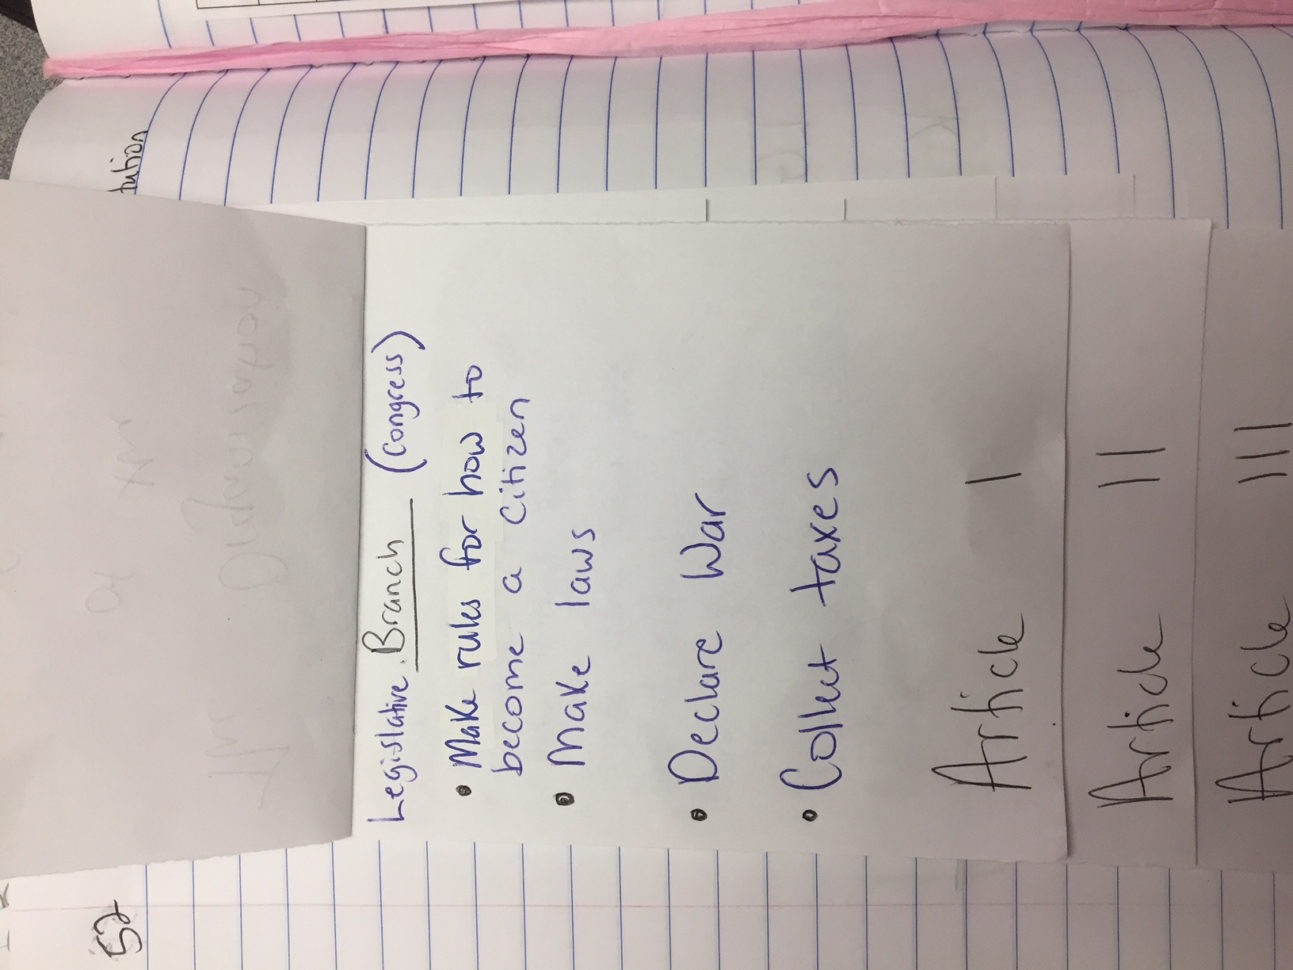 tution
52
Legislative Branch (Congress)
• Make rules for how to
become a citizen
• Make laws
• Declare War
• Collect taxes
Article I
Article II
Article III